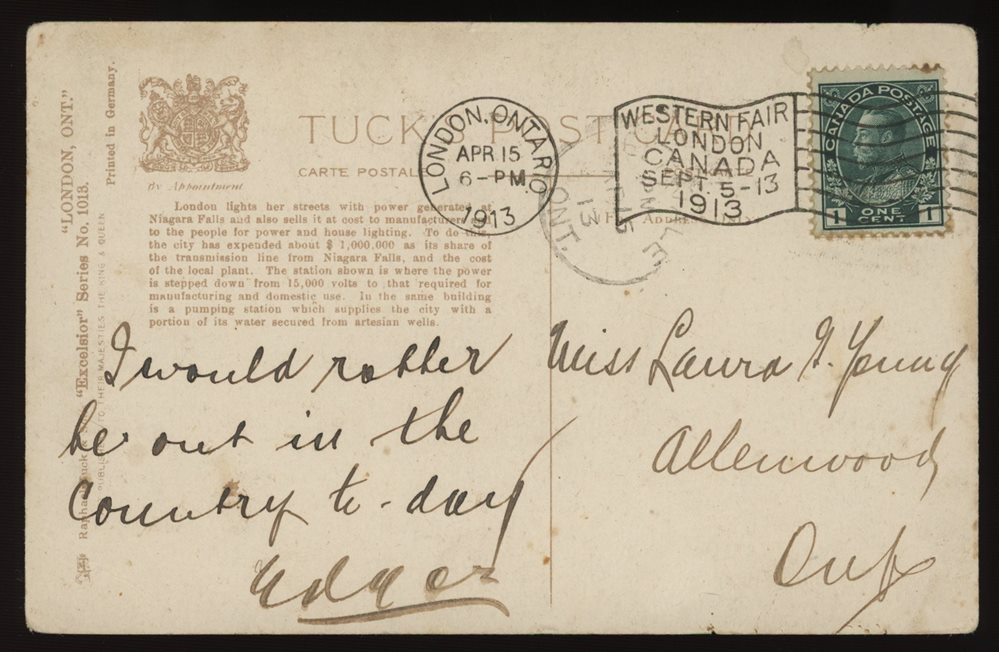 "LONDON, ONT."
"Excelsior" Series No. 1013.
Printed in Germany.
By Appointment
TUCK'S POST CARD
CARTE POSTALE
London lights her streets with power generated at
Niagara Falls and also sells it at cost to manufacturers
to the people for power and house lighting. To do this,
the city has expended about $ 1,000,000 as its share of
the transmission line from Niagara Falls, and the cost
of the local plant. The station shown is where the power
is stepped down from 15,000 volts to that required for
manufacturing and domestic use. In the same building
is a pumping station which supplies the city with a
portion of its water secured from artesian wells.
LONDON, ONTARIO
APR 15
6-PM
1913
WESTERN FAIR
LONDON
CANADA
SEPT. 5-13
1913
ONT.
13
CANADA POSTAGE
1 ONE CENT 1
I would rather
be out in the
Country to-day
Edgar
Miss Laura G. Young
Allenwood
Ont